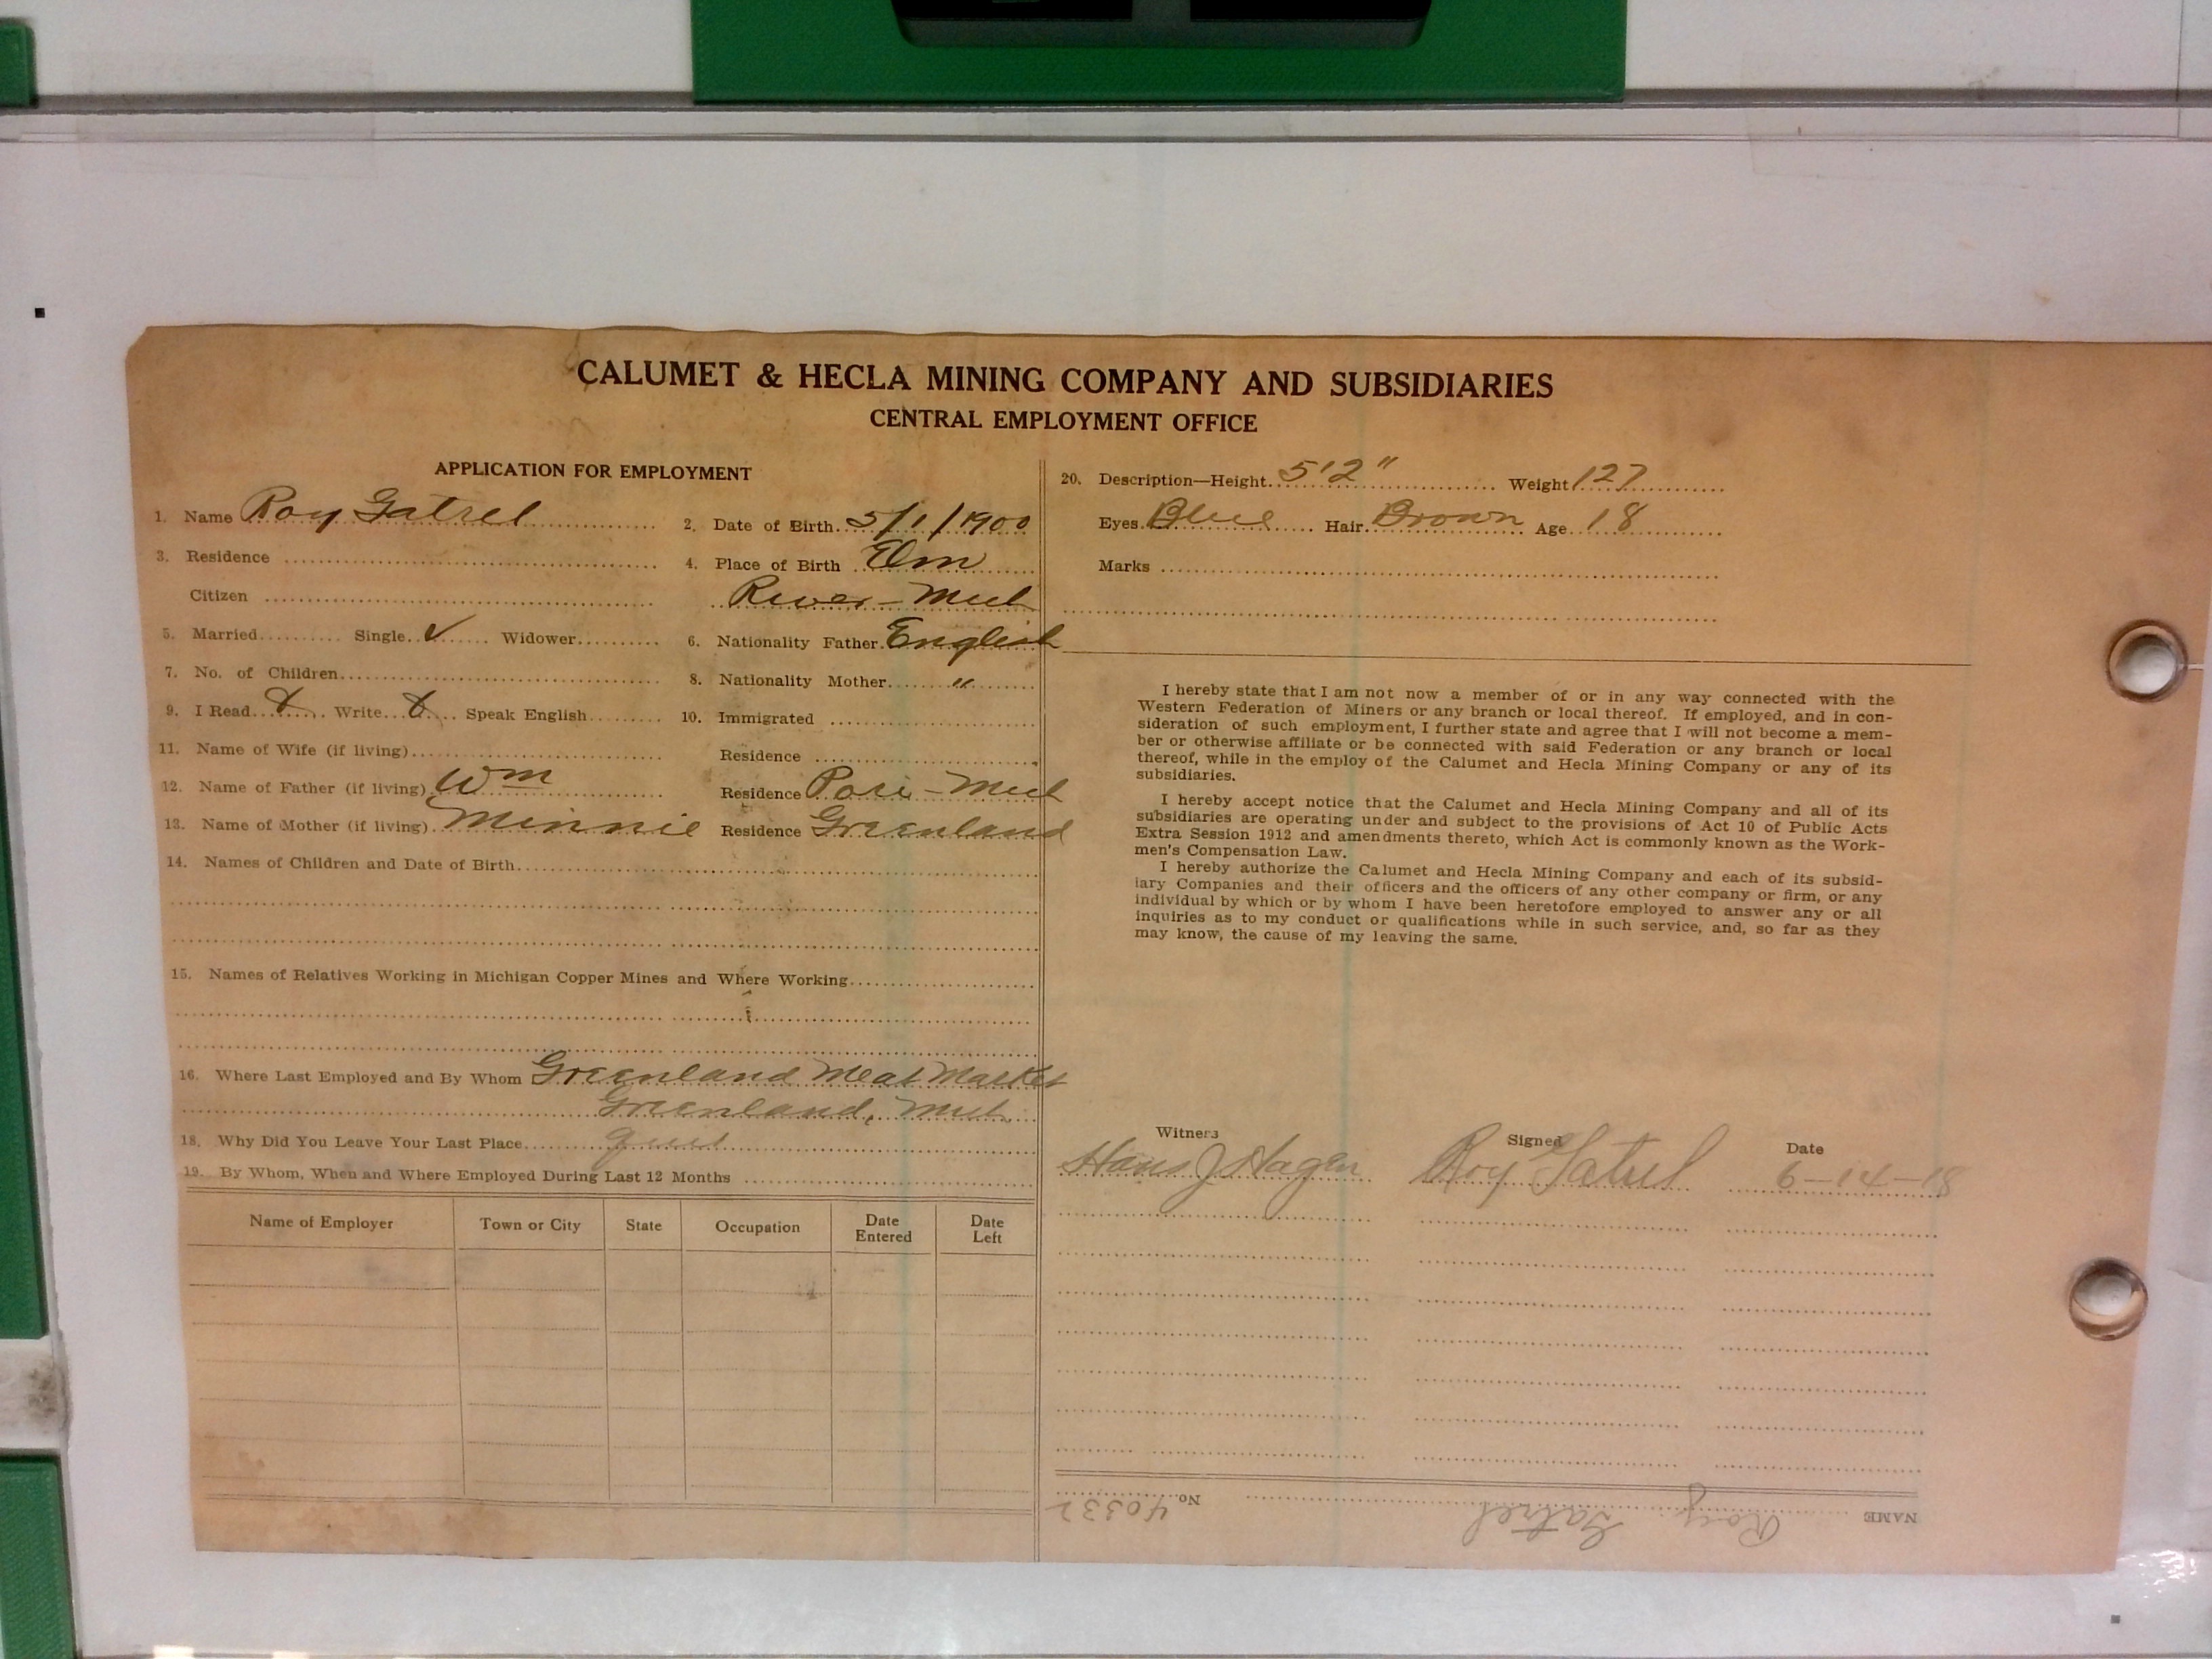 CALUMET & HECLA MINING COMPANY AND SUBSIDIARIES
CENTRAL EMPLOYMENT OFFICE
APPLICATION FOR EMPLOYMENT
1. Name Roy Gatrel
2. Date of Birth 5/1/1900
3. Residence
4. Place of Birth Elm
Citizen
River - Mich
5. Married Single ✓ Widower
6. Nationality Father English
7. No. of Children
8. Nationality Mother "
9. I Read Write Speak English
10. Immigrated
11. Name of Wife (if living)
Residence
12. Name of Father (if living) Wm
Residence - Mich
13. Name of Mother (if living) Minnie
Residence Greenland
14. Names of Children and Date of Birth
15. Names of Relatives Working in Michigan Copper Mines and Where Working
16. Where Last Employed and By Whom Greenland Meat Market
Greenland, Mich
18. Why Did You Leave Your Last Place Quit
19. By Whom, When and Where Employed During Last 12 Months
Name of Employer Town or City State Occupation Date Entered Date Left
20. Description—Height 5'2" Weight 127
Eyes Blue Hair Brown Age 18
Marks
I hereby state that I am not now a member of or in any way connected with the
Western Federation of Miners or any branch or local thereof. If employed, and in con-
sideration of such employment, I further state and agree that I will not become a mem-
ber or otherwise affiliate or be connected with said Federation or any branch or local
thereof, while in the employ of the Calumet and Hecla Mining Company or any of its
subsidiaries.
I hereby accept notice that the Calumet and Hecla Mining Company and all of its
subsidiaries are operating under and subject to the provisions of Act 10 of Public Acts
Extra Session 1912 and amendments thereto, which Act is commonly known as the Work-
men's Compensation Law.
I hereby authorize the Calumet and Hecla Mining Company and each of its subsid-
iary Companies and their officers and the officers of any other company or firm, or any
individual by which or by whom I have been heretofore employed to answer any or all
inquiries as to my conduct or qualifications while in such service, and, so far as they
may know, the cause of my leaving the same.
Witness Signed Date
Hans J Hagen Roy Gatrel 6-14-18
NAME Roy Gatrel No. 40332